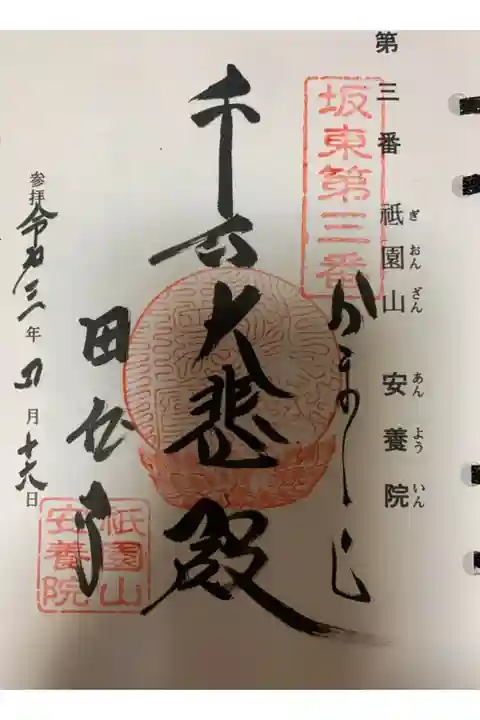 第三番 祗園山 安養院
ぎおんざん あんよういん
坂東第三番
かまくら
千手大悲殿
田代寺
参拝 令和三年 月十六日
祗園山
安養院